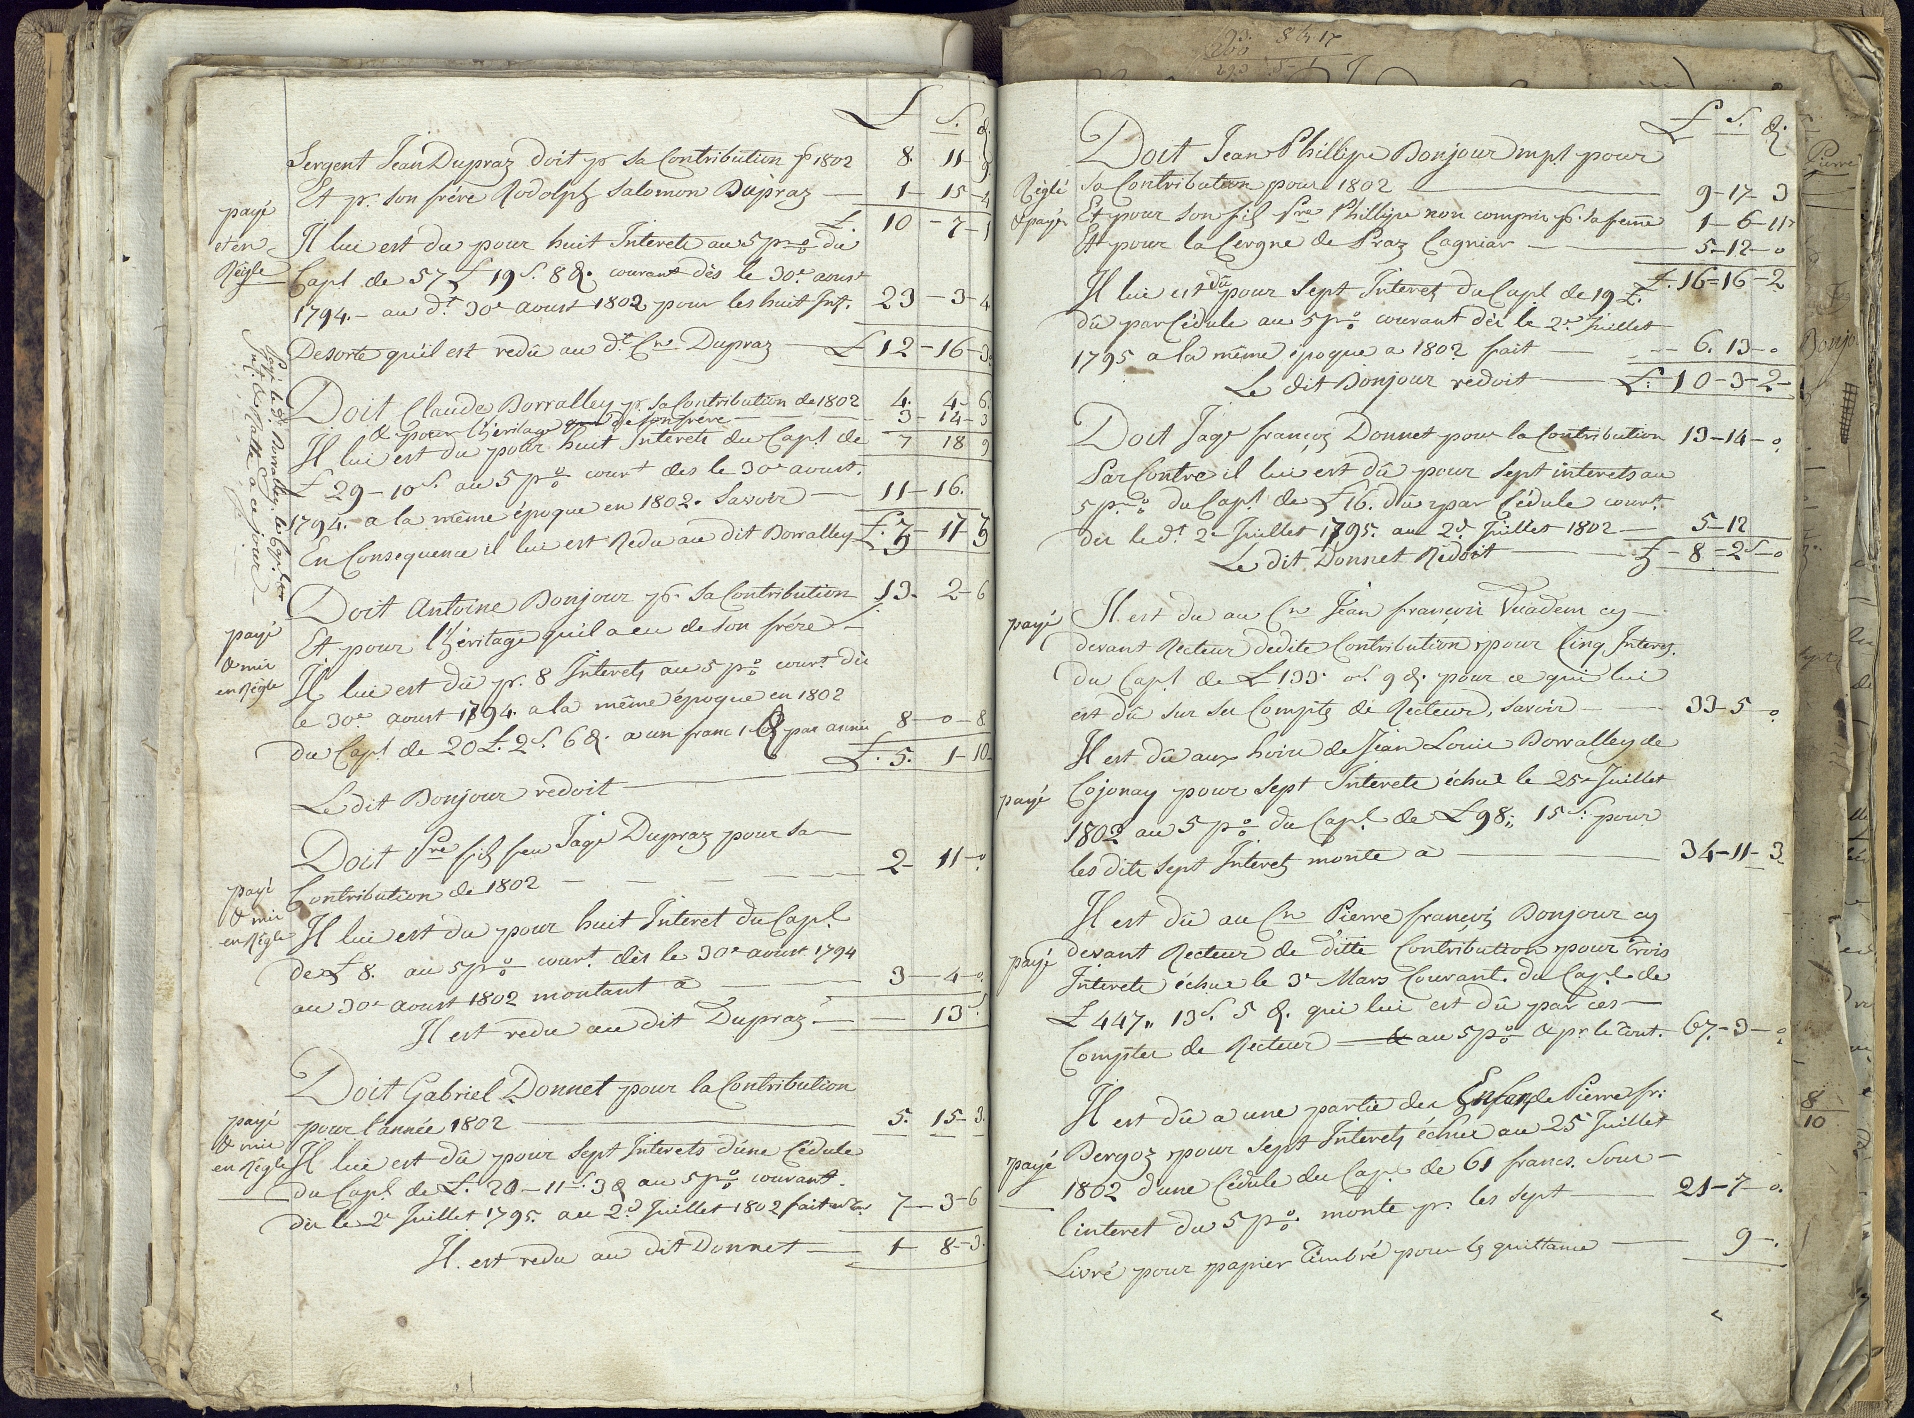 £ S. d.
Sergent Jean Dupraz doit pr. sa Contribution pr 1802 8. 11 9
Et pr. son frére Rodolph Salomon Dupraz 1 - 15 - 4
£. 10 - 7 - 1
payé
et en
Régle
Il lui est du pour huit Interets au 5 p o/o du
Capl. de 57 £ 19 S. 8 d. courant dès le 30e. aoust
1794. - au dt. 30e aoust 1802 pour les huit Int. 23 - 3 - 4
Desorte qu'il est redû au dt. Cn Dupraz £ 12 - 16 - 3
Doit Claude Borralley pr. sa Contribution de 1802 4. 4 6
& pour l'heritage de son frére 3 - 14 - 3
7 18 9
Il lui est du pour huit Interets du Capl. de
£ 29 - 10 S. au 5 p o/o court. dès le 30e aoust.
1794. a la même époque en 1802. Savoir 11 - 16.
En Consequence il lui est Redu au dit Borralley £. 3 - 17 - 3
payé le dt. Borralley
a ce jour
Doit Antoine Bonjour pr. sa Contribution 13. 2 - 6
Et pour l'héritage qu'il a eu de son frére
payé
& mis
en Régle
Il lui est dû pr. 8 Interets au 5 p o/o court. dès
le 30e. aoust 1794. a la même époque en 1802
du Capl. de 20 £. 2 S. 6 d. a un franc 1 d par année 8 - 0 - 8
£. 5. 1 - 10
Le dit Bonjour redoit
Doit Pre fils feu Jaqe Dupraz pour sa
Contribution de 1802 2 - 11 - 0
payé
& mis
en Régle
Il lui est du pour huit Interet du Capl.
de £ 8. au 5 p o/o court. dès le 30e aoust 1794
au 30e aoust 1802 montant à 3 - 4 - 0
Il est redu au dit Dupraz 13 S.
Doit Gabriel Donnet pour la Contribution
pour l'année 1802 5. 15 - 3.
payé
& mis
en Régle
Il lui est dû pour sept Interets d'une Cédule
du Capl. de £. 20 - 11 S. 3 d au 5 p o/o courant.
dès le 2e Juillet 1795. au 2d. Juillet 1802 fait 7 - 3 - 6
Il est redu au dit Donnet 1 - 8 - 3.
£ S. d.
Doit Jean Phillipe Bonjour mpl pour
Réglé
& payé
sa Contribution pour 1802 9 - 17 - 3
Et pour son fils Pre Phillipe non compris pr. sa femme 1 - 6 - 11
Et pour la Cergne de Praz Cagniar 5 - 12 - 0
£. 16 = 16 - 2
Il lui est dû pour sept Interets du Capl. de 19 £.
dû par Cédule au 5 p o/o courant dès le 2e Juillet
1795 a la même époque a 1802 fait 6. 13 - 0
Le dit Bonjour redoit £. 10 - 3 - 2
Doit Jaqe françois Donnet pour la Contribution 13 - 14 - 0
Par Contre il lui est dû pour sept interets au
5 p. o/o du Capl. de £ 16. dû par Cédule court.
dès le dt. 2e Juillet 1795. au 2d. Juillet 1802 5 - 12
Le dit Donnet Redoit £ - 8 = 2 S - 0
payé
Il est du au Cn Jean françois Vuadem cy
devant Recteur dedite Contribution pour Cinq Interes.
du Capl. de £ 133. 0 S. 9 d. pour ce qui lui
est dû sur ses Compte de Recteur, savoir 33 - 5 0
Il est dû aux hoirs de Jean Louis Borralley de
payé
Cojonay pour sept Interets échus le 25e Juillet
1802 au 5 p o/o du Capl. de £ 98 ,, 15 S. pour
les dits sept Interets monte a 34 - 11 - 3
Il est dû au Cn Pierre françois Bonjour cy
payé
devant Recteur de ditte Contribution pour trois
Interets échus le 3e Mars Courant. du Capl. de
£ 447 ,, 13 S. 5 d. qui lui est dû par ces
Comptes de Recteur au 5 p o/o & pr. le tout. 67 - 3 - 0
Il est dû a une partie des Enfans de Pierre fr:
payé
Bergoz pour sept Interets échus au 25 Juillet
1802 d'une Cédule du Capl. de 61 francs. sous
l'interet du 5 p o/o monte pr. les sept 21 - 7 - 0.
Livré pour papier timbré pour les quittance 9 - .
8
10